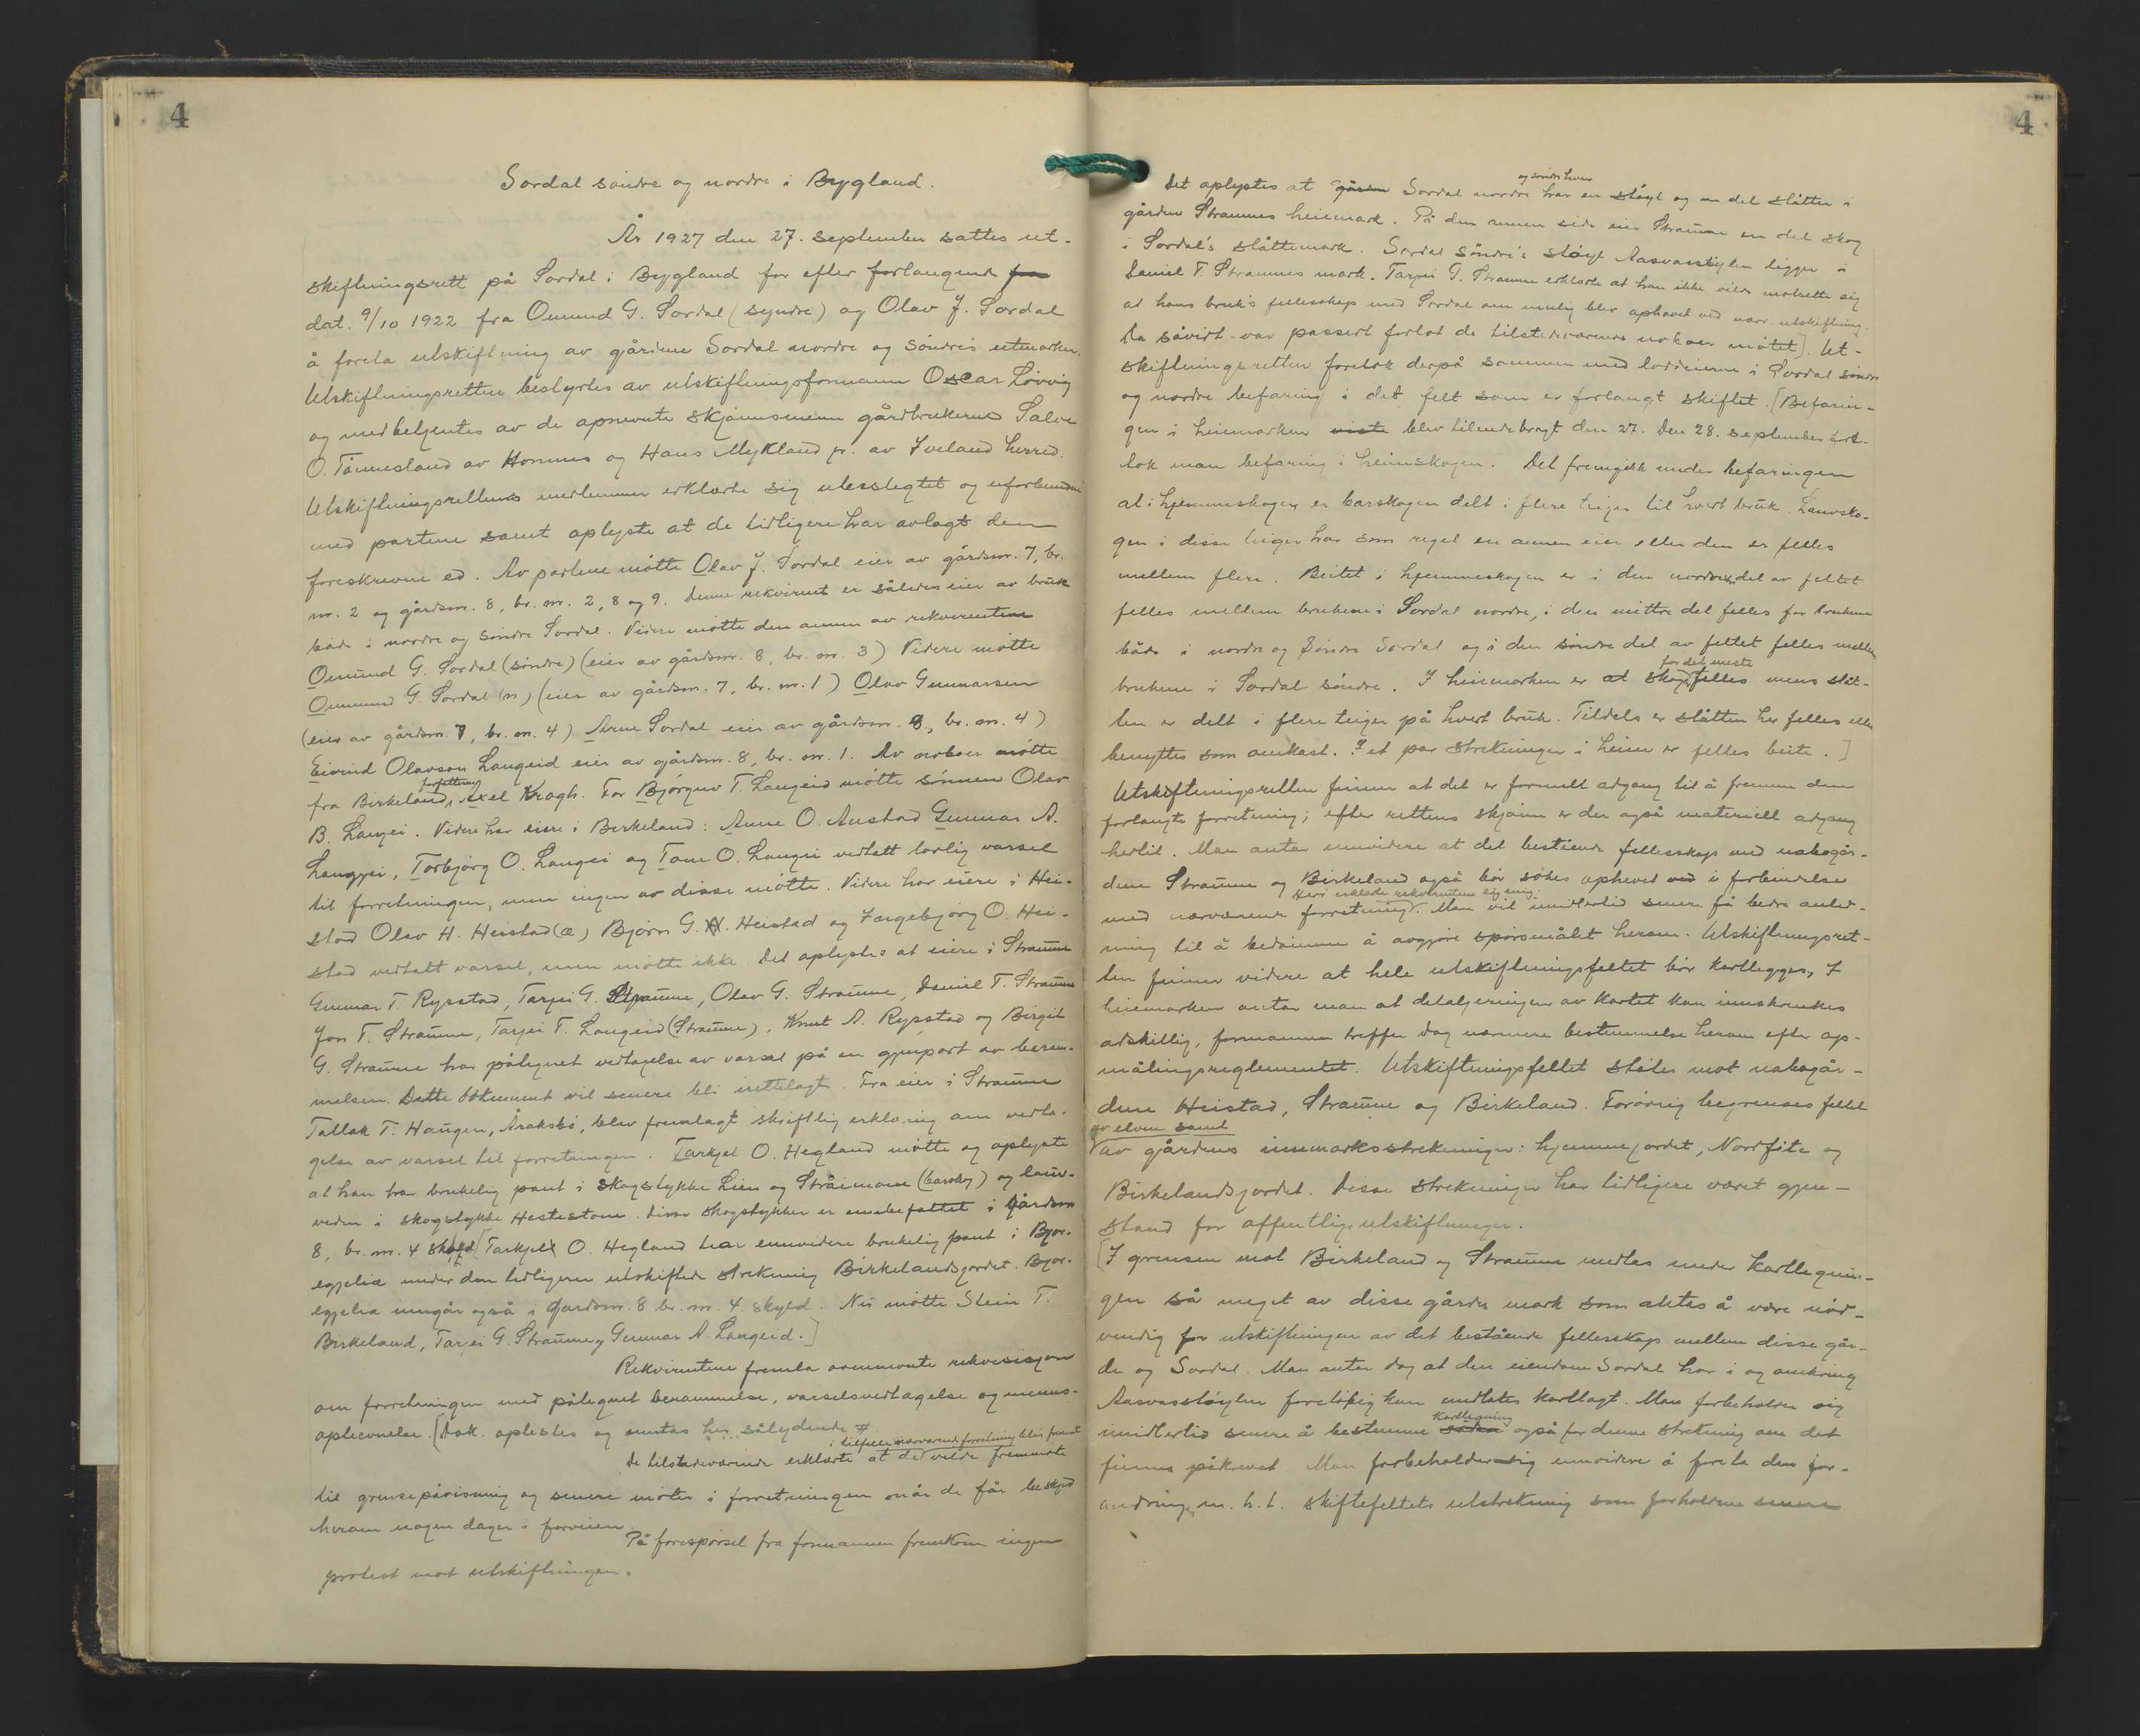 4
Sordal söndre og nordre i Bygland.
År 1927 den 27. september sattes ut-
skiftningsrett på Sordal i Bygland for efter forlangende fra
dat. 9/10 1922 fra Omund G. Sordal (syndre) og Olav J. Sordal
å foreta utskiftning av gårdene Sordal nordre og söndre's utmarker.
Utskiftningsretten bestyrtes av utskiftningsformann Oscar Lövvig
og medbetjentes av de opnevnte skjönnsmenn gårdbrukerne Salve
O. Tönnesland av Hornnes og Hans Mykland jr. av Iveland herred.
Utskiftningsrettens medlemmer erklærte sig ubeslegtet og uforbundne
med partene samt oplyste at de tidligere har avlagt den
foreskrevne ed. Av partene mötte Olav J. Sordal eier av gårdsnr. 7, br.
nr. 2 og gårdsnr. 8, br. nr. 2, 8 og 9. Denne rekvirent er således eier av bruk
både i nordre og söndre Sordal. Videre mötte den annen av rekvirentene
Omund G. Sordal (söndre) (eier av gårdsnr. 8, br. nr. 3) Videre mötte
Ommund G. Sordal (n) (eier av gårdsnr. 7, br. nr. 1) Olav Gunnarsen
(eier av gårdsnr. 7, br. nr. 4) Arne Sordal eier av gårdsnr. 8, br. nr. 4)
Eivind Olavson Langeid eier av gårdsnr. 8, br. nr. 1. Av naboer mötte
fra Birkeland, forfatteren Axel Krogh. For Björguv T. Langeid mötte sönnen Olav
B. Langei. Videre har eiere i Birkeland: Anne O. Austad Gunnar A.
Langjei, Torbjörg O. Langei og Tone O. Langei vedtatt lovlig varsel
til forretningen, men ingen av disse mötte. Videre har eiere i Hei-
stad Olav H. Heistad (a) Björn G. H. Heistad og Ingebjörg O. Hei-
stad vedtatt varsel, men mötte ikke. Det oplystes at eiere i Straume
Gunnar T. Rysstad, Tarjei G. Straume, Olav G. Straume, Daniel T. Straume
Jon T. Straume, Tarjei T. Langeid (Straume), Knut A. Rysstad og Birgit
G. Straume har påtegnet vedtagelse av varsel på en gjenpart av beram-
melsen. Dette dokument vil senere bli irettelagt. Fra eier i Straume
Tallak T. Haugen, Araksbö, blev fremlagt skriftlig erklæring om vedta-
gelse av varsel til forretningen. Tarkjel O. Hegland mötte og oplyste
at han har brukelig pant i skogstykke Lien og Stråimoen (barskog) og lauv-
veden i skogstykke Hestestone. Disse skogstykker er innbefattet i Gårdsnr
8, br. nr. 4 skyld [Tarkjell O. Hegland har ennvidere brukelig pant i Bjor-
egjelia under den tidligere utskiftede strekning Birkelandsjordet. Bjor-
egjelia inngår også i Gardsnr. 8 br. nr. 4. skyld. Nu mötte Stein T.
Birkeland, Tarjei G. Straume og Gunnar A. Langeid.]
Rekvirentene fremla ovennevnte rekvisisjon
om forretningen med påtegnet berammelse, varselsvedtagelse og menns-
oplevnelse. [Dok. oplestes og inntas her sålydende #
i tilfelle nærværende forretning blir fremmet
De tilstedeværende erklærte at de vilde fremmöte
til grensepåvisning og senere möter i forretningen når de får beskjed
herom nogen dager i forveien.
På forespörsel fra formannen fremkom ingen
protest mot utskiftningen.
4
og söndre hver
Det oplystes at gården Sordal nordre har en slöyl og en del slåtter i
gården Straumes heiemark. På den annen side eier Straume en del skog
i Sordal's slåttemark. Sordal söndre's stöyl Aasvasstöylen ligger i
Daniel T. Straumes mark. Tarjei G. Straume erklærte at han ikke vilde motsette sig
at hans bruk's fellesskap med Sordal om mulig blev ophevet ved nærv. utskiftning.
Da såvidt var passert forlot de tilstedeværende naboer mötet]. Ut-
skiftningsretten foretok derpå sammen med loddeierne i Sordal söndre
og nordre befaring i det felt som er forlangt skiftet. [Befarin-
gen i heiemarken viste blev tilendebragt den 27. Den 28. september fore-
tok man befaring i heimskogen. Det fremgikk under befaringen
at i hjemmeskogen er barskogen delt i flere teiger til hvert bruk. Lauvsko-
gen i disse teiger har som regel en annen eier eller den er felles
mellem flere. Beitet i hjemmeskogen er i den nordre del av feltet
felles mellem brukene i Sordal nordre, i den mittre del felles for brukene
både i nordre og Söndre Sordal og i den söndre del av feltet felles mellem
for det meste
brukene i Sordal söndre. I heiemarken er at skog felles mens slåt-
ten er delt i flere teiger på hvert bruk. Tildels er slåtten her felles eller
benyttes som omkast. I et par strekninger i heien er felles beite.]
Utskiftningsretten finner at det er formell adgang til å fremme den
forlangte forretning; efter rettens skjönn er der også materiell adgang
hertil. Man antar ennvidere at det bestående fellesskap med nabogår-
dene Straume og Birkeland også bör sökes ophevet ved i forbindelse
Heri erklærte rekvirentene sig enig.
med nærværende forretning. Man vil imidlertid senere få bedre anled-
ning til å bedömme å avgjöre spörsmålet herom. Utskiftningsret-
ten finner videre at hele utskiftningsfeltet bör kartlegges, I
heiemarken antar man at detaljeringen av kartet kan innskrenkes
adskillig, formannen treffer dog nærmere bestemmelse herom efter op-
målingsreglementet. Utskiftningsfeltet stöter mot nabogår-
dene Heistad, Straume og Birkeland. Forövrig begrenses feltet
av elven samt
av gårdens innmarksstrekninger: hjemmejordet, Nordfite og
Birkelandsjordet. Disse strekninger har tidligere været gjen-
stand for offentlige utskiftninger.
[I grensen mot Birkeland og Straume medtas under kartlegnin-
gen så meget av disse gårdes mark som aktes å være nöd-
vendig for utskiftningen av det bestående fellesskap mellem disse går-
de og Sordal. Man antar dog at den eiendom Sordal har i og omkring
Aasvasstöylen foreløbig kan undlates kartlagt. Man forbeholder sig
kartlegning
imidlertid senere å bestemme sådan også for denne strekning om det
finnes påkrevet. Man forbeholder sig ennvidere å foreta den for-
andring m. h. t. skiftefeltets utstrekning som forholdene senere